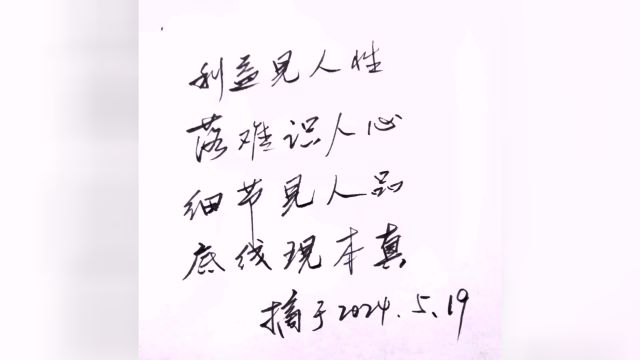 利益见人性
落难识人心
细节见人品
底线现本真
摘于2024.5.19